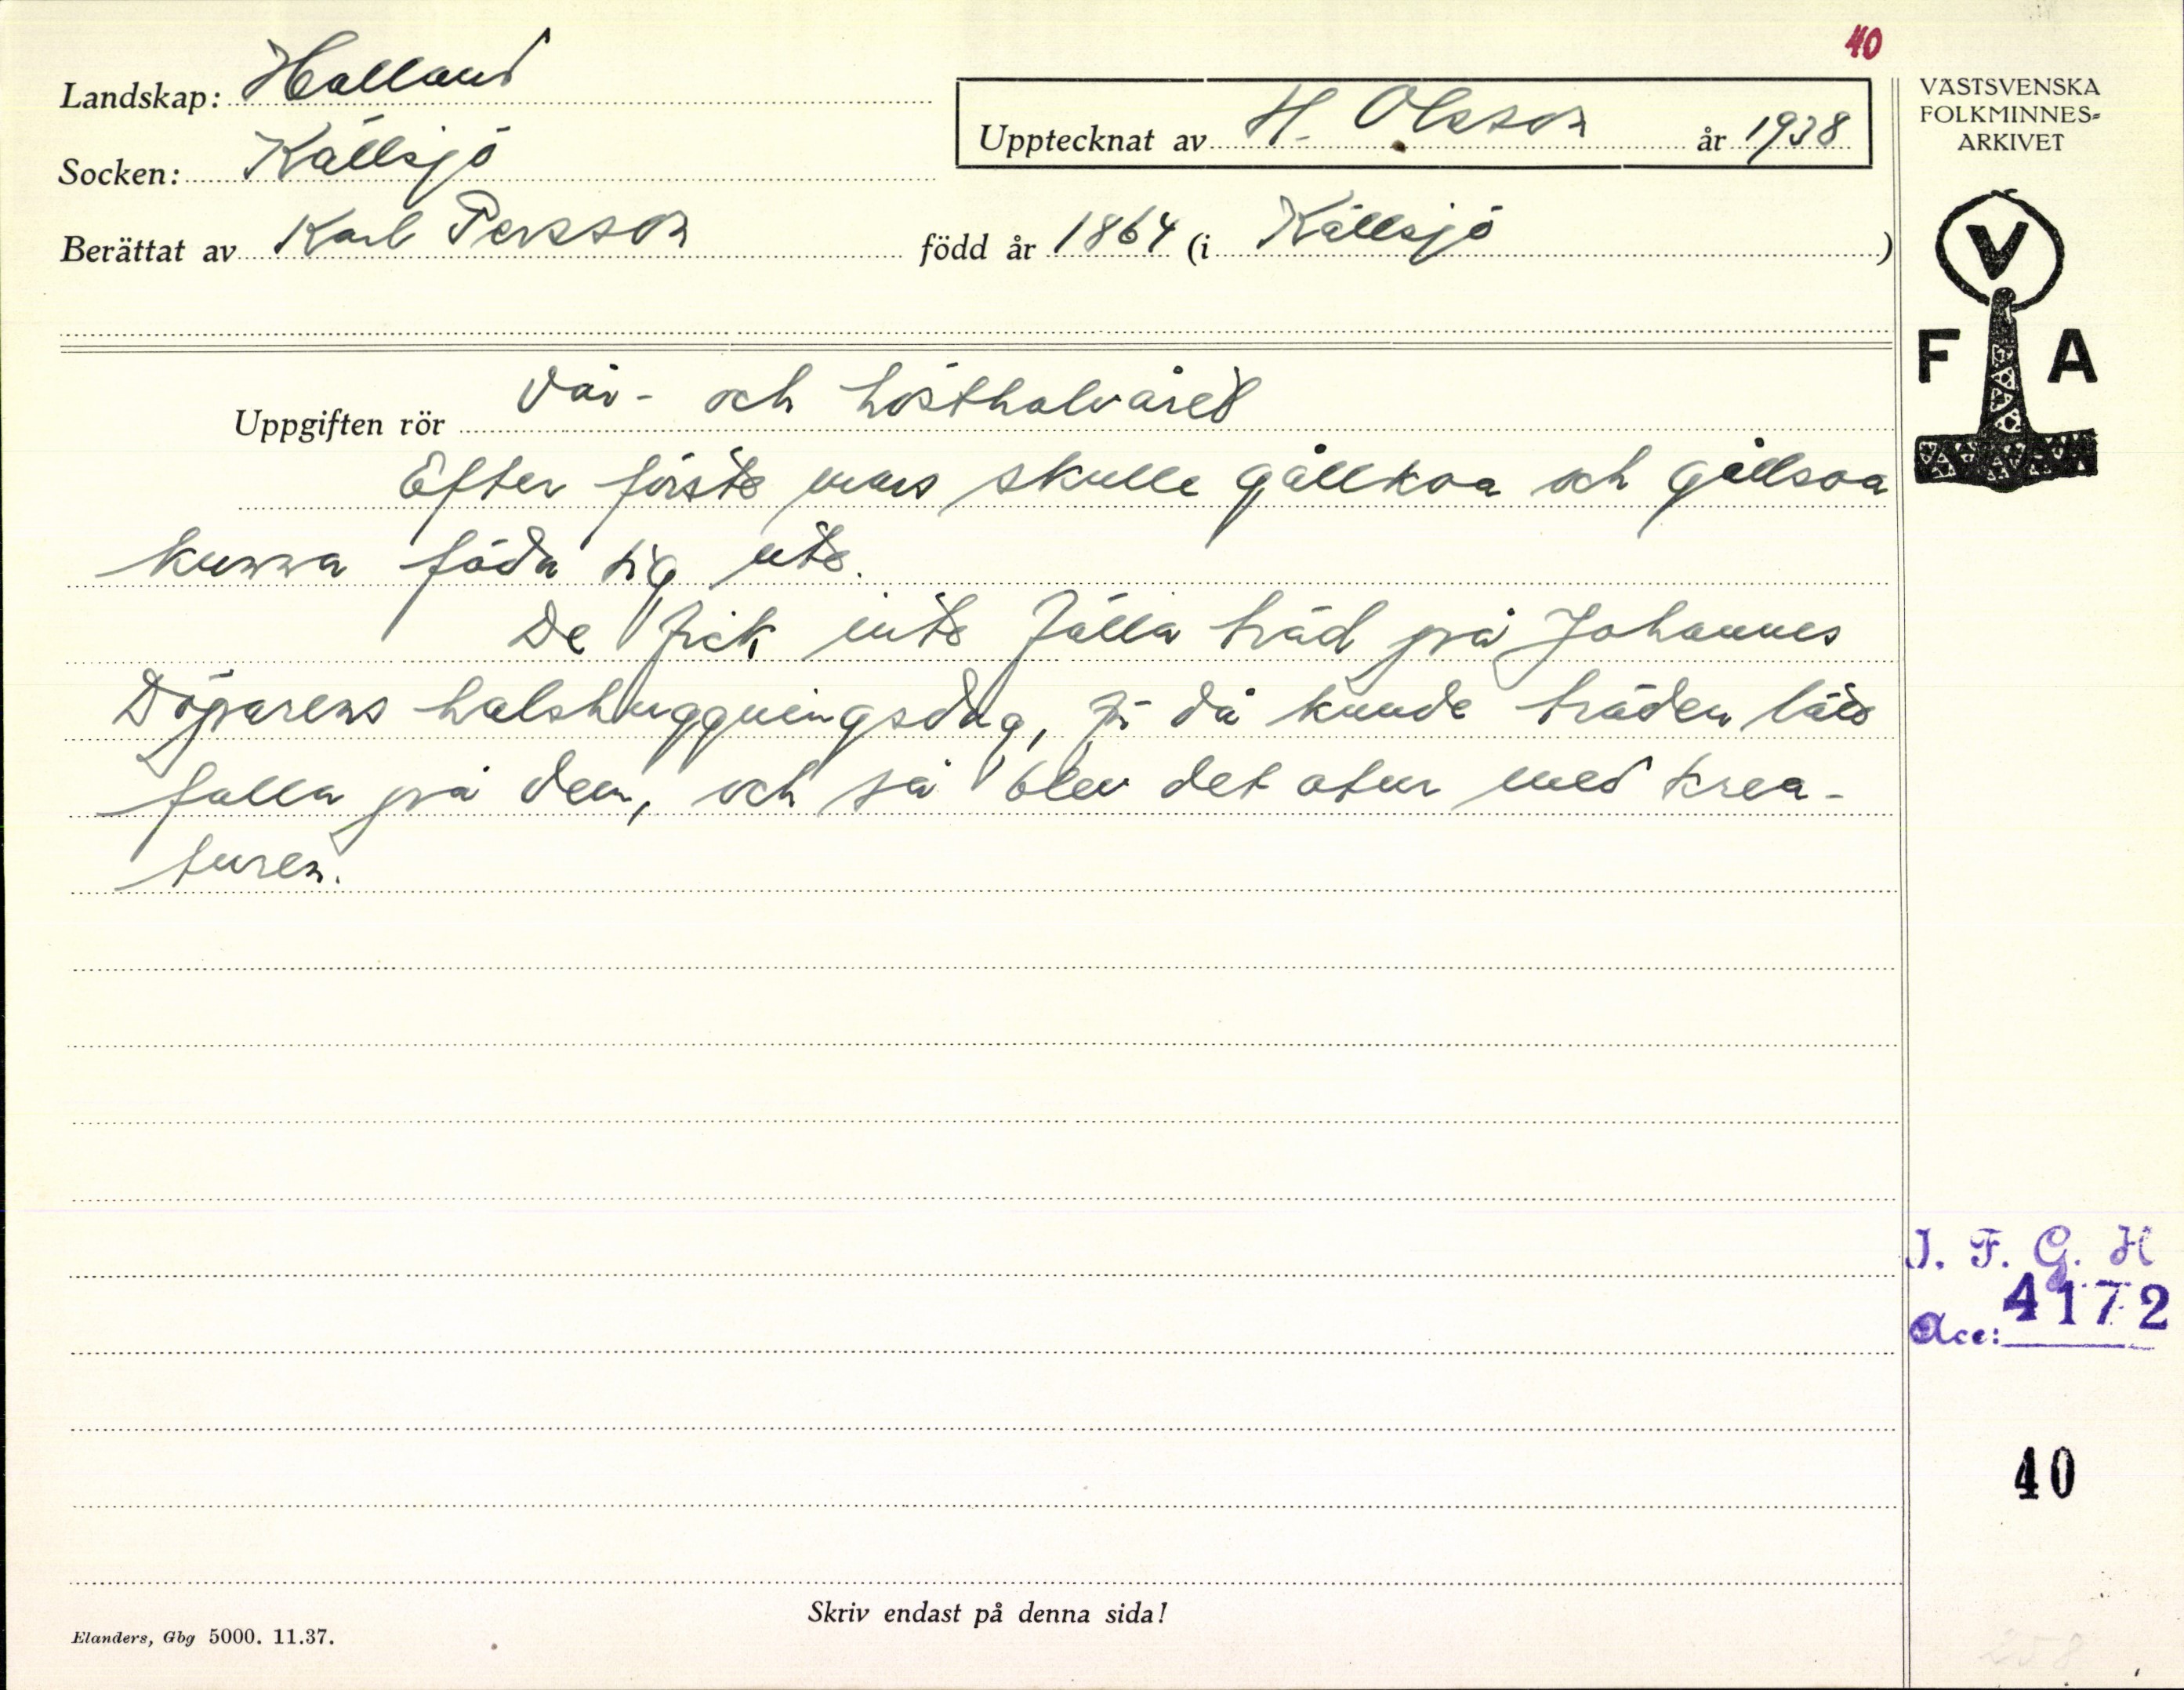 40
Landskap: Halland
VÄSTSVENSKA
FOLKMINNES=
ARKIVET
Upptecknat av H. Olsson år 1938
Socken: Källsjö
Berättat av Karl Persson född år 1864 (i Källsjö)
V
F A
Uppgiften rör Vår- och hösthalvåret
Efter förste mars skulle gållkoa och gållsoa
kunna föda sig ute.
De fick inte fälla träd på Johannes
Döparens halshuggningsdag, för då kunde träden lätt
falla på dem, och så blev det otur med krea-
turen.
I. F. G. H
Acc: 4172
40
Skriv endast på denna sida!
Elanders, Gbg 5000. 11.37.
258